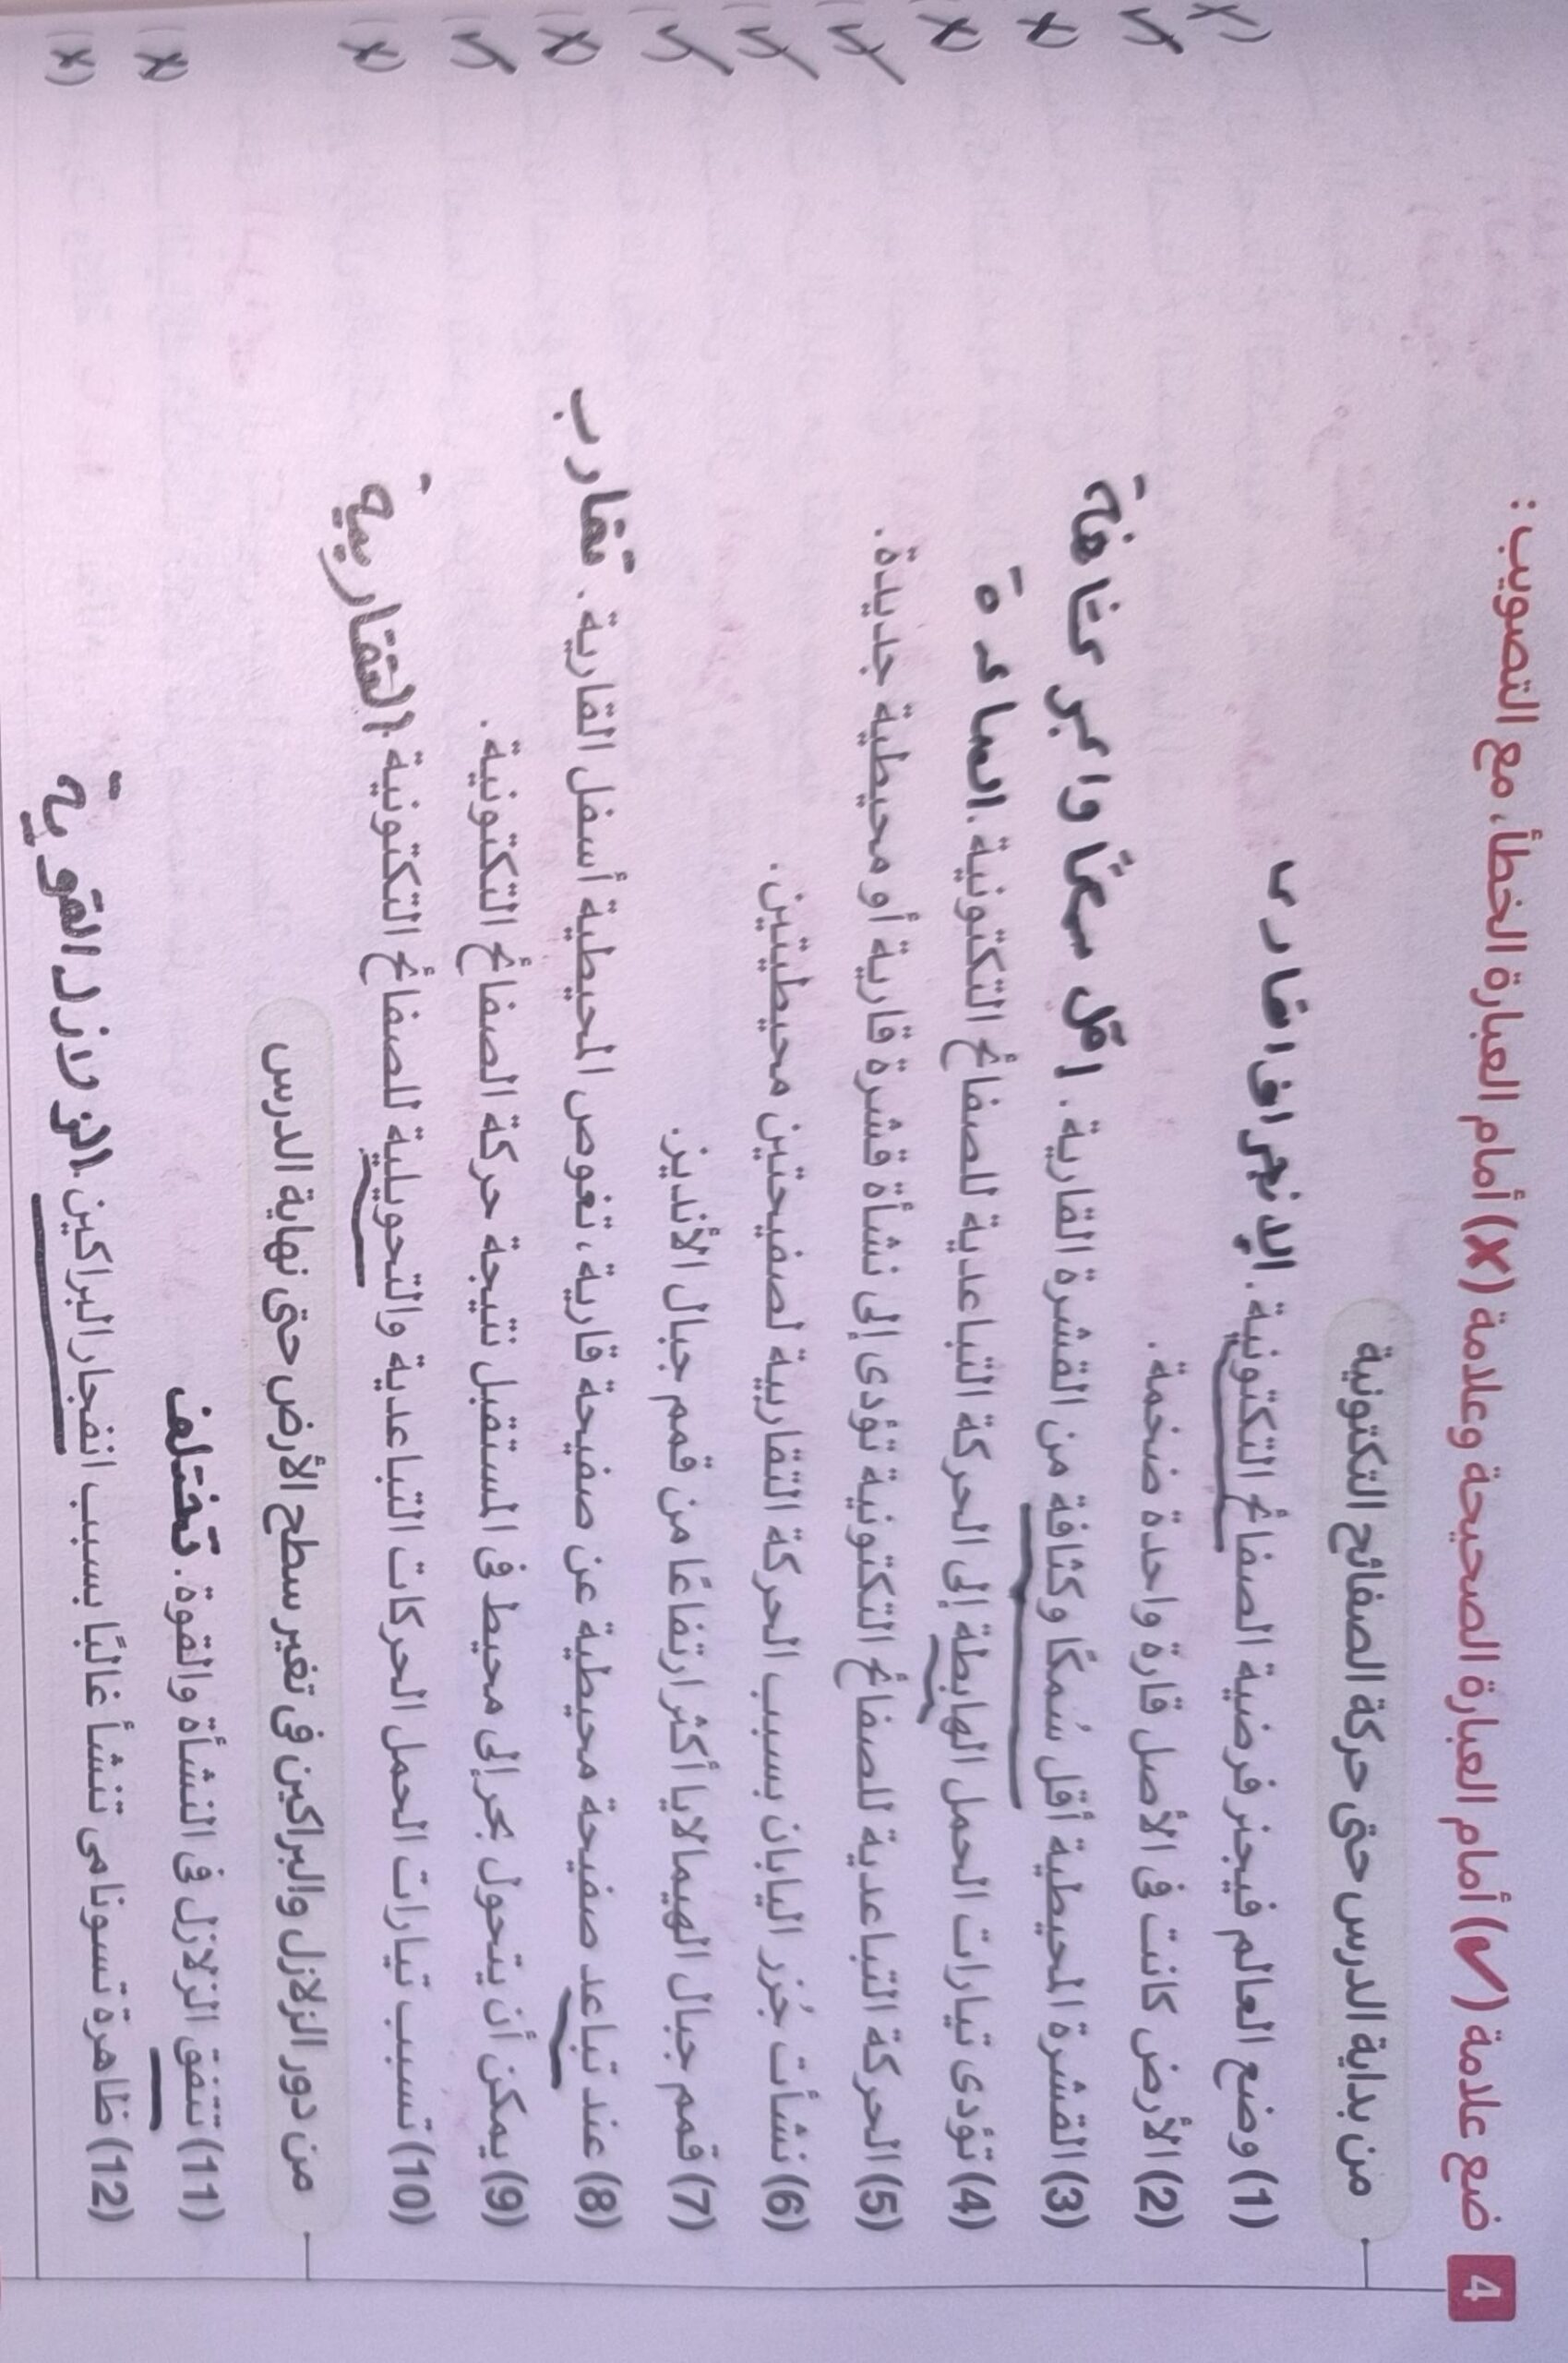 4 ضع علامة (✓) أمام العبارة الصحيحة وعلامة (✗) أمام العبارة الخطأ، مع التصويب :
من بداية الدرس حتى حركة الصفائح التكتونية
(1) وضع العالم فيجنر فرضية الصفائح التكتونية. الانجراف القارى (✗)
(2) الأرض كانت فى الأصل قارة واحدة ضخمة. ✓
(3) القشرة المحيطية أقل سُمكًا وكثافة من القشرة القارية. اقل سمكًا واكبر كثافة ✗
(4) تؤدى تيارات الحمل الهابطة إلى الحركة التباعدية للصفائح التكتونية. الصاعدة ✗
(5) الحركة التباعدية للصفائح التكتونية تؤدى إلى نشأة قشرة قارية أو محيطية جديدة. ✓
(6) نشأت جُزر اليابان بسبب الحركة التقاربية لصفيحتين محيطيتين. ✓
(7) قمم جبال الهيمالايا أكثر ارتفاعًا من قمم جبال الأنديز. ✓
(8) عند تباعد صفيحة محيطية عن صفيحة قارية، تغوص المحيطية أسفل القارية. تقارب ✗
(9) يمكن أن يتحول بحر إلى محيط فى المستقبل نتيجة حركة الصفائح التكتونية. ✓
(10) تسبب تيارات الحمل الحركات التباعدية والتحويلية للصفائح التكتونية. التقاربية ✗
من دور الزلازل والبراكين فى تغير سطح الأرض حتى نهاية الدرس
(11) تتفق الزلازل فى النشأة والقوة. تختلف ✗
(12) ظاهرة تسونامى تنشأ غالبًا بسبب انفجار البراكين. الزلازل القوية (✗)